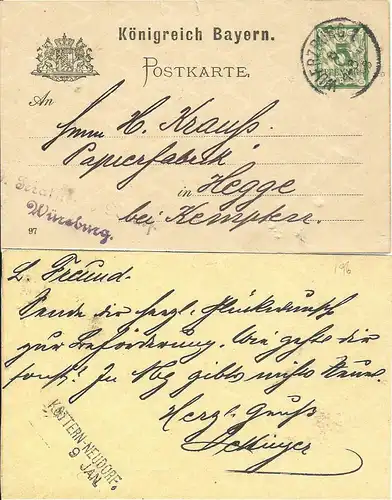 Königreich Bayern.
POSTKARTE.
5
WÜRZBURG
An
Herrn H. Krauß.
Papierfabrik
in Hegge
bei Kempten.
Würzburg.
97
196
L. Freund.
Sende dir herzl. Glückwunsch
zur Beförderung. Wie geht's dir
sonst! In Nbg gibts nichts Neues.
Herzl. Gruß
KATTERN-NEUDORF.
9
JAN.